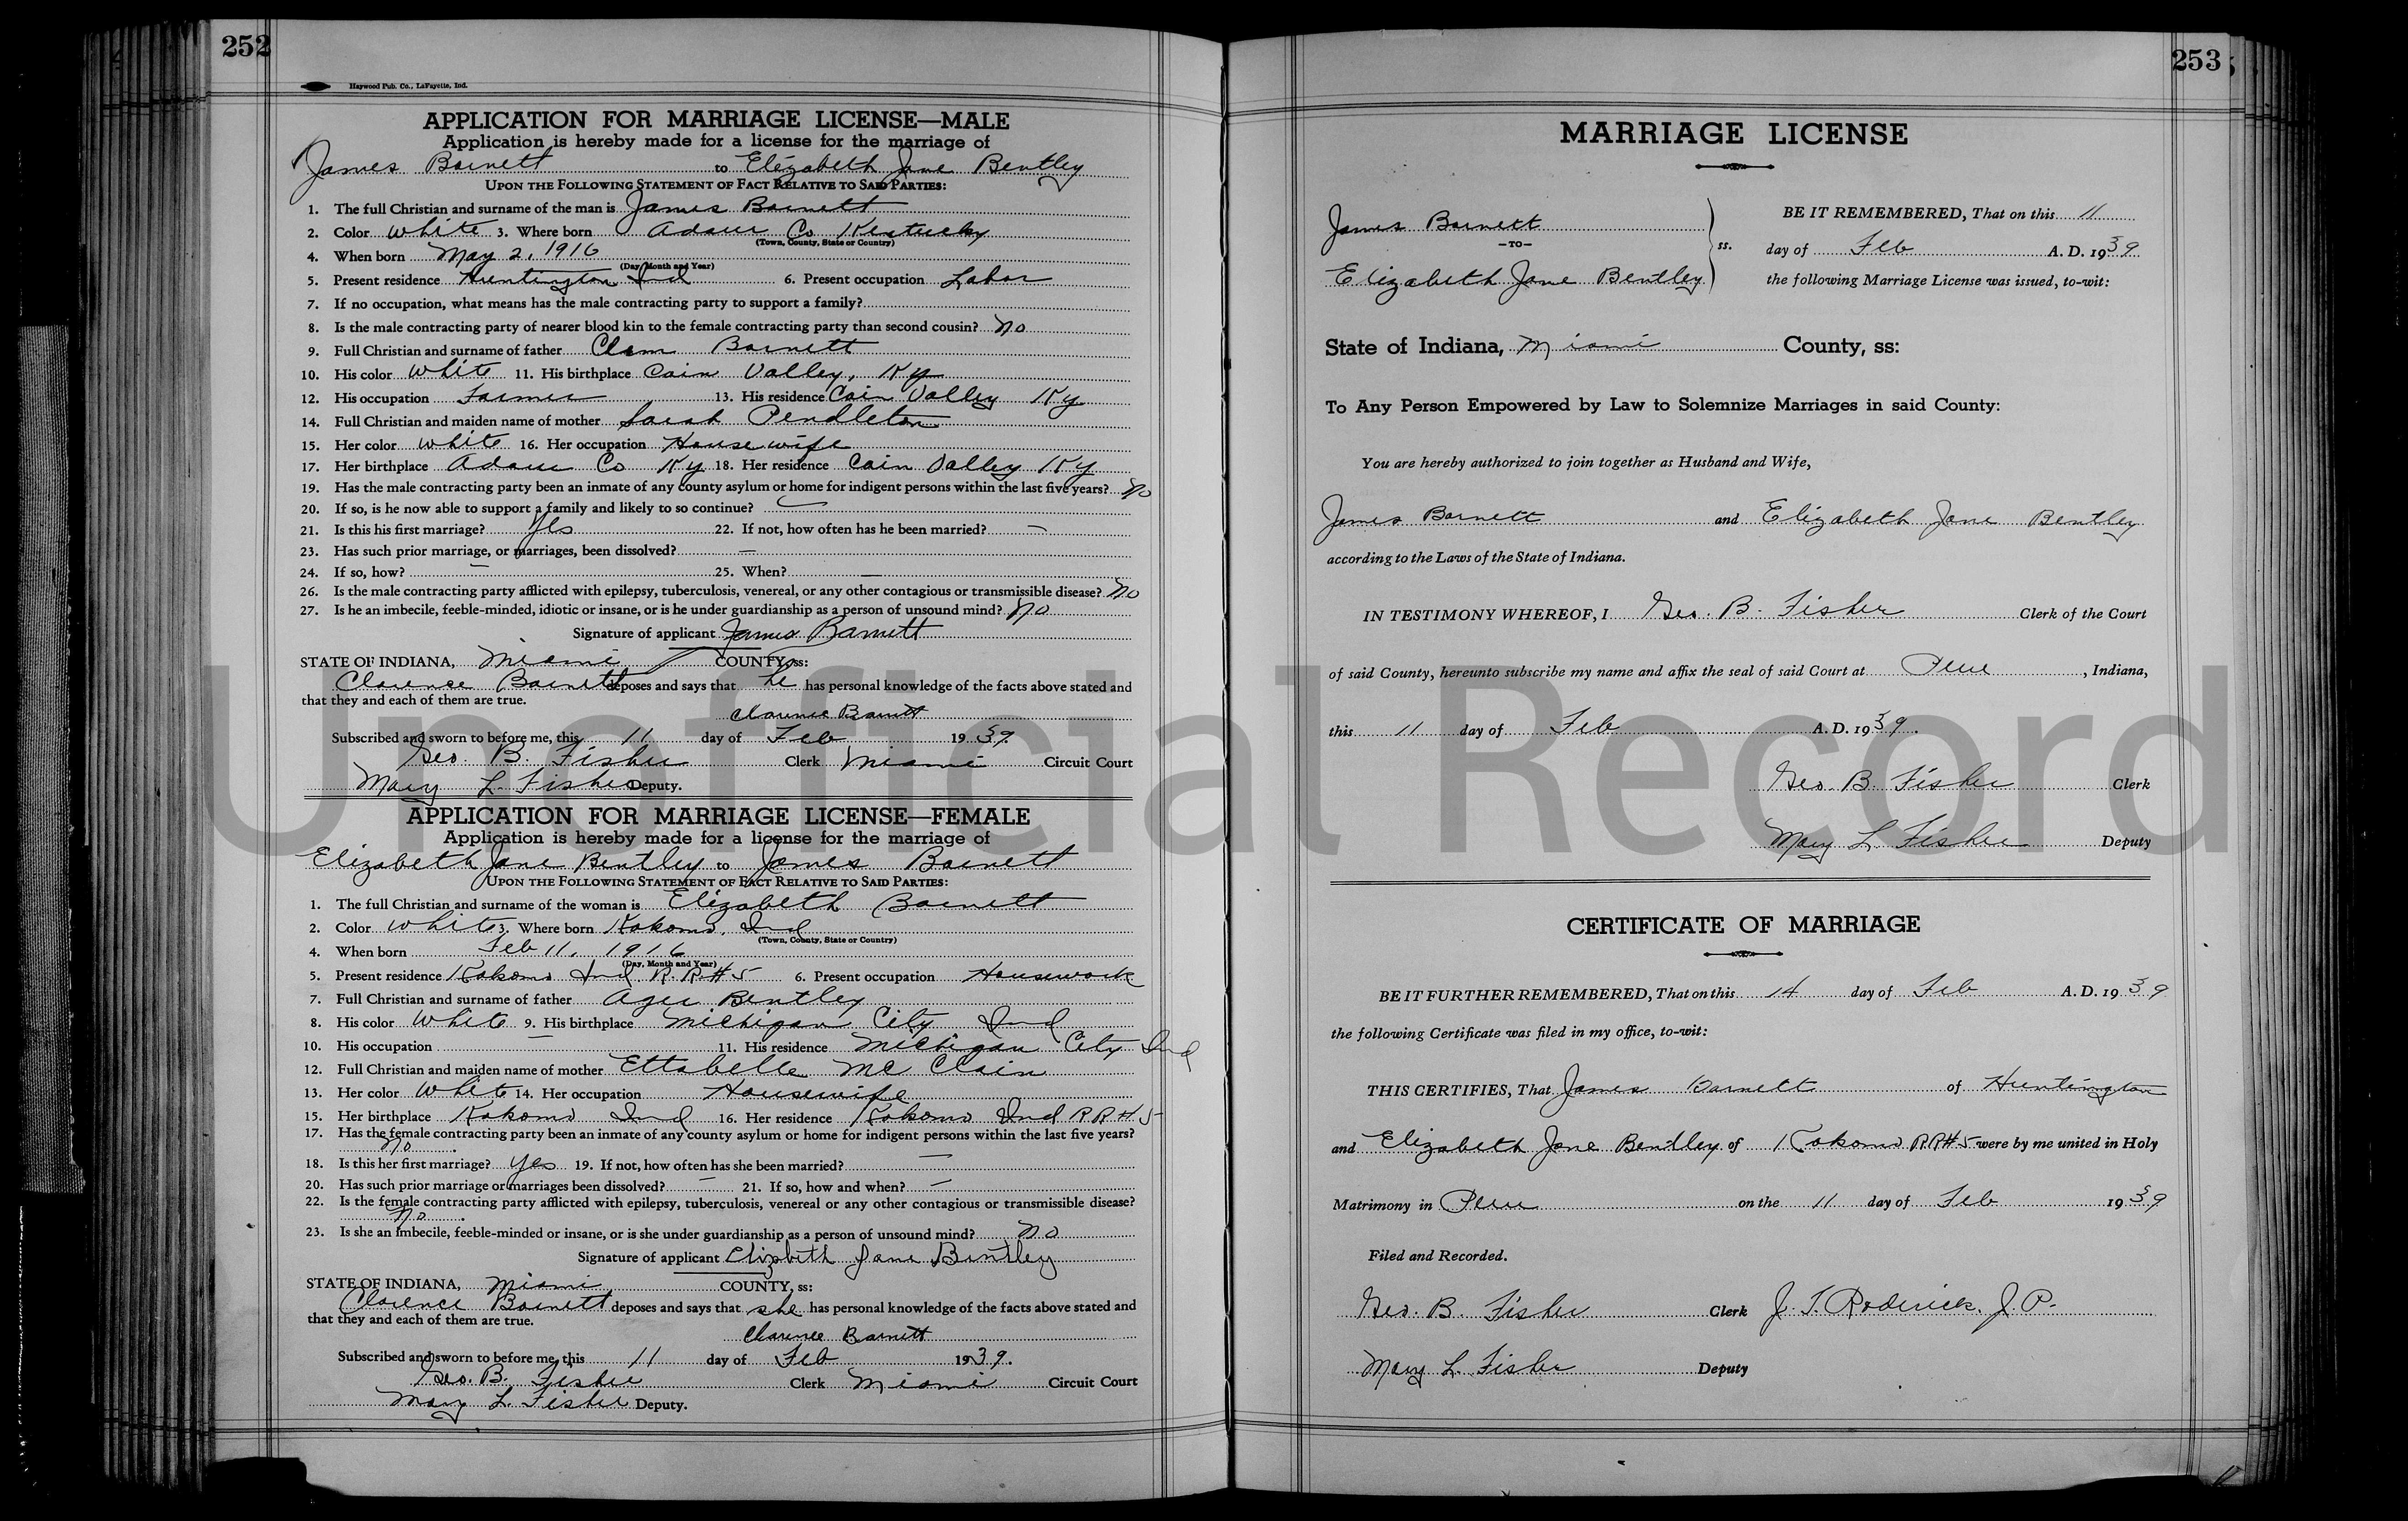 252
Haywood Pub. Co., LaFayette, Ind.
APPLICATION FOR MARRIAGE LICENSE—MALE
Application is hereby made for a license for the marriage of
James Barnett to Elizabeth Jane Bentley
UPON THE FOLLOWING STATEMENT OF FACT RELATIVE TO SAID PARTIES:
1. The full Christian and surname of the man is James Barnett
2. Color White 3. Where born Adair Co Kentucky
(Town, County, State or Country)
4. When born May 2, 1916
(Day, Month and Year)
5. Present residence Huntington Ind 6. Present occupation Labor
7. If no occupation, what means has the male contracting party to support a family?
8. Is the male contracting party of nearer blood kin to the female contracting party than second cousin? No
9. Full Christian and surname of father Clem Barnett
10. His color White 11. His birthplace Cain Valley, Ky
12. His occupation Farmer 13. His residence Cain Valley Ky
14. Full Christian and maiden name of mother Sarah Pendleton
15. Her color White 16. Her occupation Housewife
17. Her birthplace Adair Co Ky 18. Her residence Cain Valley Ky
19. Has the male contracting party been an inmate of any county asylum or home for indigent persons within the last five years? No
20. If so, is he now able to support a family and likely to so continue? —
21. Is this his first marriage? Yes 22. If not, how often has he been married? —
23. Has such prior marriage, or marriages, been dissolved? —
24. If so, how? — 25. When? —
26. Is the male contracting party afflicted with epilepsy, tuberculosis, venereal, or any other contagious or transmissible disease? No
27. Is he an imbecile, feeble-minded, idiotic or insane, or is he under guardianship as a person of unsound mind? No
Signature of applicant James Barnett
STATE OF INDIANA, Miami COUNTY, ss:
Clarence Barnett deposes and says that he has personal knowledge of the facts above stated and
that they and each of them are true.
Clarence Barnett
Subscribed and sworn to before me, this 11 day of Feb 1939.
Geo. B. Fisher Clerk Miami Circuit Court
Mary L. Fisher Deputy.
APPLICATION FOR MARRIAGE LICENSE—FEMALE
Application is hereby made for a license for the marriage of
Elizabeth Jane Bentley to James Barnett
UPON THE FOLLOWING STATEMENT OF FACT RELATIVE TO SAID PARTIES:
1. The full Christian and surname of the woman is Elizabeth Barnett
2. Color White 3. Where born Kokomo, Ind
(Town, County, State or Country)
4. When born Feb 11, 1916
(Day, Month and Year)
5. Present residence Kokomo Ind R. R. #5 6. Present occupation Housework
7. Full Christian and surname of father Bentley
8. His color White 9. His birthplace Michigan City Ind
10. His occupation — 11. His residence Michigan City Ind
12. Full Christian and maiden name of mother Ettabelle Mc Clain
13. Her color White 14. Her occupation Housewife
15. Her birthplace Kokomo Ind 16. Her residence Kokomo Ind R R #5
17. Has the female contracting party been an inmate of any county asylum or home for indigent persons within the last five years?
No
18. Is this her first marriage? Yes 19. If not, how often has she been married? —
20. Has such prior marriage or marriages been dissolved? — 21. If so, how and when? —
22. Is the female contracting party afflicted with epilepsy, tuberculosis, venereal or any other contagious or transmissible disease?
No
23. Is she an imbecile, feeble-minded or insane, or is she under guardianship as a person of unsound mind? No
Signature of applicant Elizbeth Jane Bentley
STATE OF INDIANA, Miami COUNTY, ss:
Clarence Barnett deposes and says that she has personal knowledge of the facts above stated and
that they and each of them are true.
Clarence Barnett
Subscribed and sworn to before me, this 11 day of Feb 1939.
Geo. B. Fisher Clerk Miami Circuit Court
Mary L. Fisher Deputy.
253
MARRIAGE LICENSE
James Barnett
—TO—
Elizabeth Jane Bentley
ss.
BE IT REMEMBERED, That on this 11
day of Feb A. D. 1939
the following Marriage License was issued, to-wit:
State of Indiana, Miami County, ss:
To Any Person Empowered by Law to Solemnize Marriages in said County:
You are hereby authorized to join together as Husband and Wife,
James Barnett and Elizabeth Jane Bentley
according to the Laws of the State of Indiana.
IN TESTIMONY WHEREOF, I Geo. B. Fisher Clerk of the Court
of said County, hereunto subscribe my name and affix the seal of said Court at Peru, Indiana,
this 11 day of Feb A. D. 1939.
Geo. B. Fisher Clerk
Mary L. Fisher Deputy
CERTIFICATE OF MARRIAGE
BE IT FURTHER REMEMBERED, That on this 14 day of Feb A. D. 1939
the following Certificate was filed in my office, to-wit:
THIS CERTIFIES, That James Barnett of Huntington
and Elizabeth Jane Bentley of Kokomo R.R#5 were by me united in Holy
Matrimony in Peru on the 11 day of Feb 1939
Filed and Recorded.
Geo. B. Fisher Clerk J. T. Roderick, J. P.
Mary L. Fisher Deputy
Unofficial Record